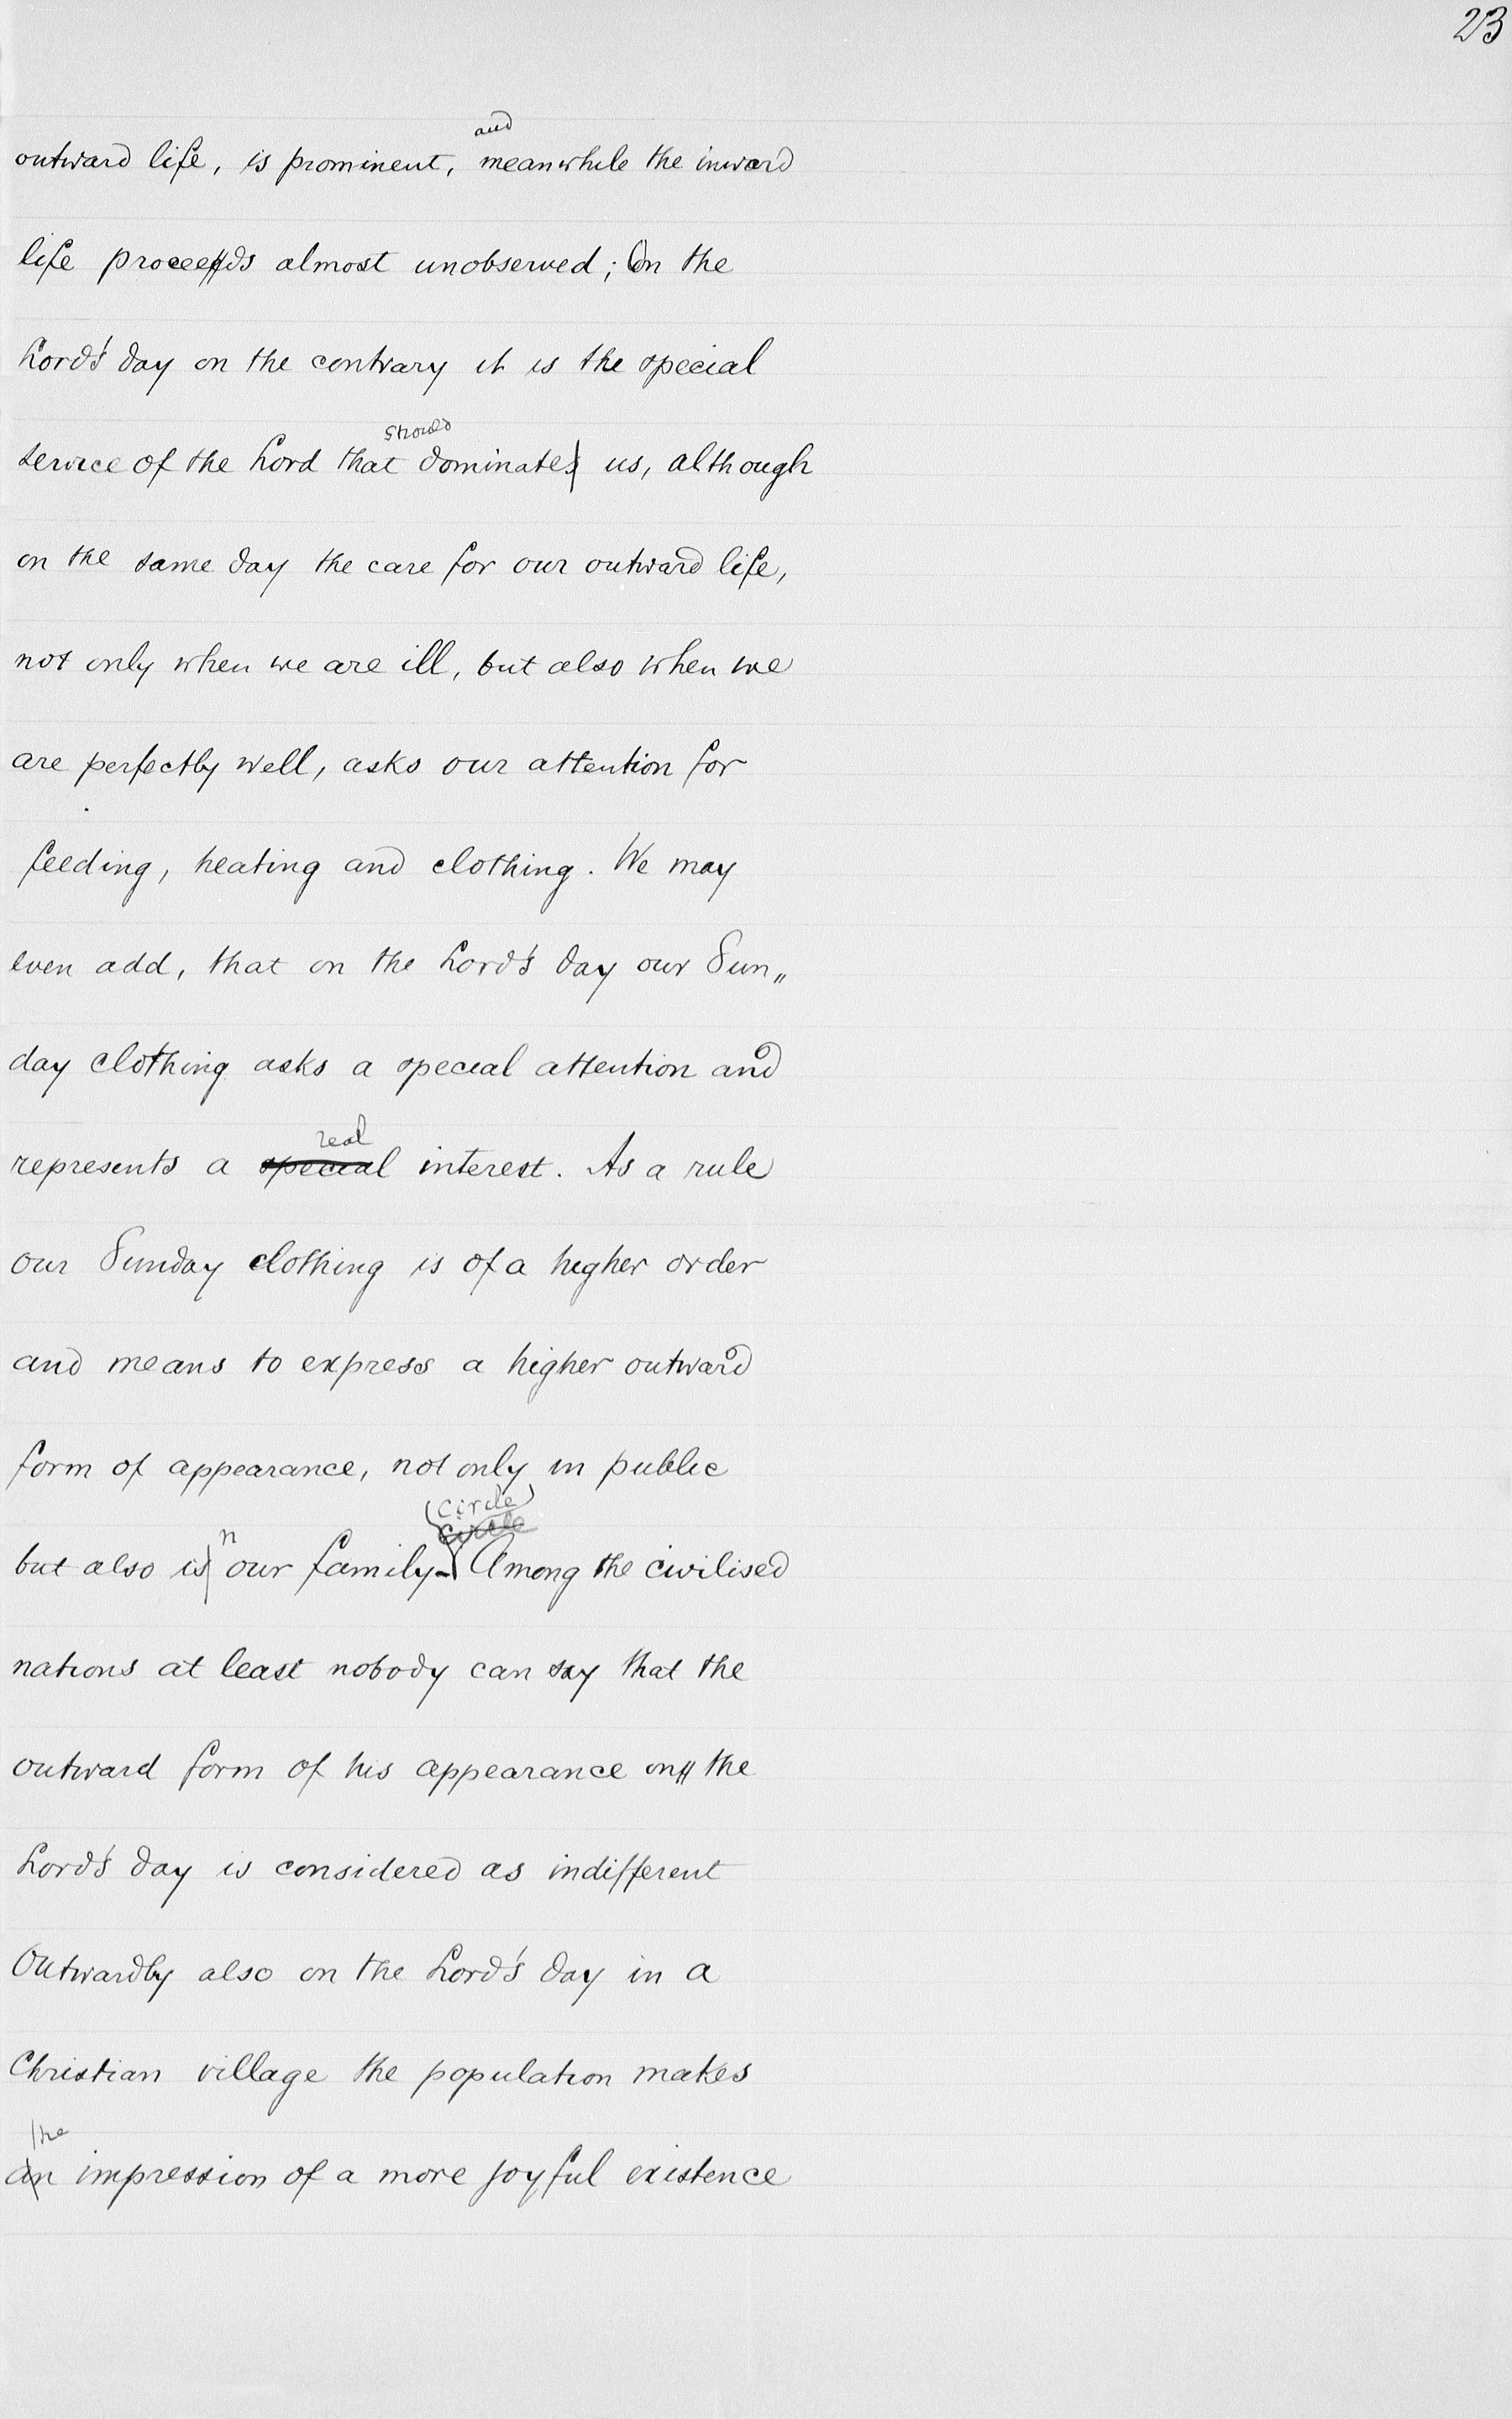 23
and
outward life, is prominent, meanwhile the inward
life proceeds almost unobserved; On the
Lord's day on the contrary it is the special
should
service of the Lord that dominates us, although
on the same day the care for our outward life,
not only when we are ill, but also when we
are perfectly well, asks our attention for
feeding, heating and clothing. We may
even add, that on the Lord's day our Sun„
day clothing asks a special attention and
real
represents a special interest. As a rule
our Sunday clothing is of a higher order
and means to express a higher outward
form of appearance, not only in public
(circle)
circle
n
but also is our family. Among the civilised
nations at least nobody can say that the
outward form of his appearance on the
Lord's day is considered as indifferent
Outwardly also on the Lord's day in a
Christian village the population makes
the
an impression of a more joyful existence